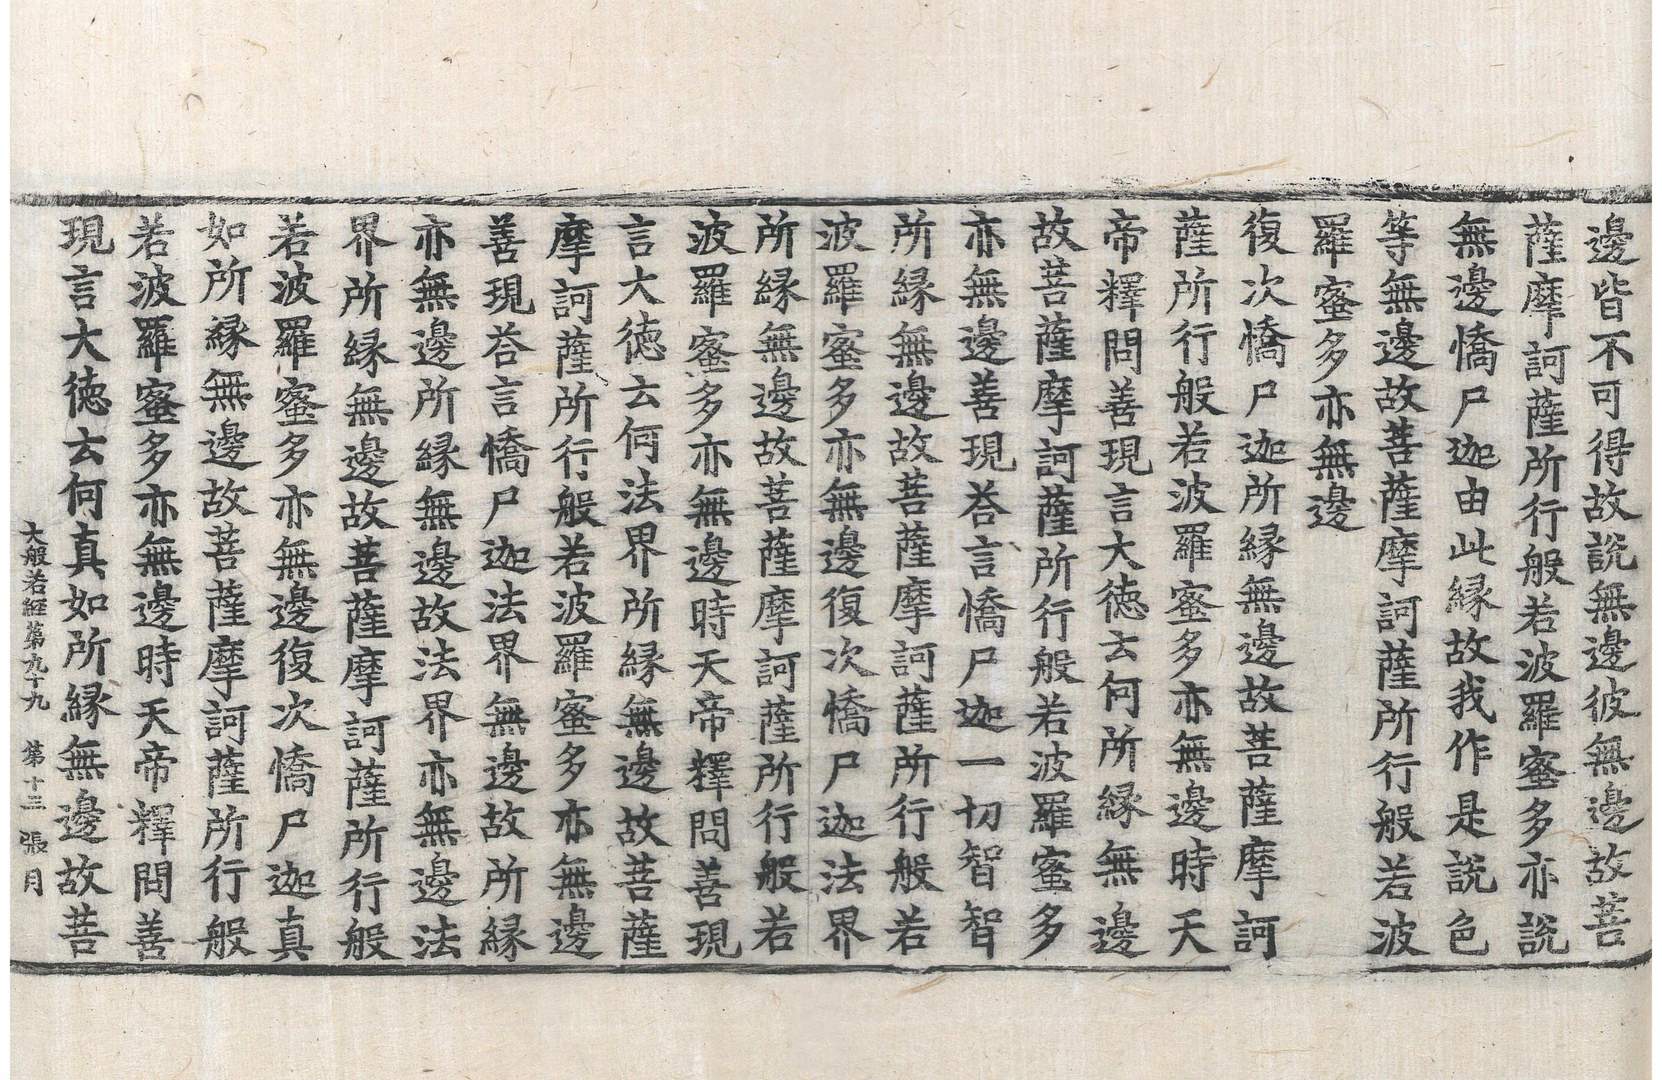 邊皆不可得故說無邊彼無邊故菩
薩摩訶薩所行般若波羅蜜多亦說
無邊憍尸迦由此緣故我作是說色
等無邊故菩薩摩訶薩所行般若波
羅蜜多亦無邊
復次憍尸迦所緣無邊故菩薩摩訶
薩所行般若波羅蜜多亦無邊時天
帝釋問善現言大德云何所緣無邊
故菩薩摩訶薩所行般若波羅蜜多
亦無邊善現荅言憍尸迦一切智智
所緣無邊故菩薩摩訶薩所行般若
波羅蜜多亦無邊復次憍尸迦法界
所緣無邊故菩薩摩訶薩所行般若
波羅蜜多亦無邊時天帝釋問善現
言大德云何法界所緣無邊故菩薩
摩訶薩所行般若波羅蜜多亦無邊
善現荅言憍尸迦法界無邊故所緣
亦無邊所緣無邊故法界亦無邊法
界所緣無邊故菩薩摩訶薩所行般
若波羅蜜多亦無邊復次憍尸迦真
如所緣無邊故菩薩摩訶薩所行般
若波羅蜜多亦無邊時天帝釋問善
現言大德云何真如所緣無邊故菩
大般若經第九十九 第十三張 月